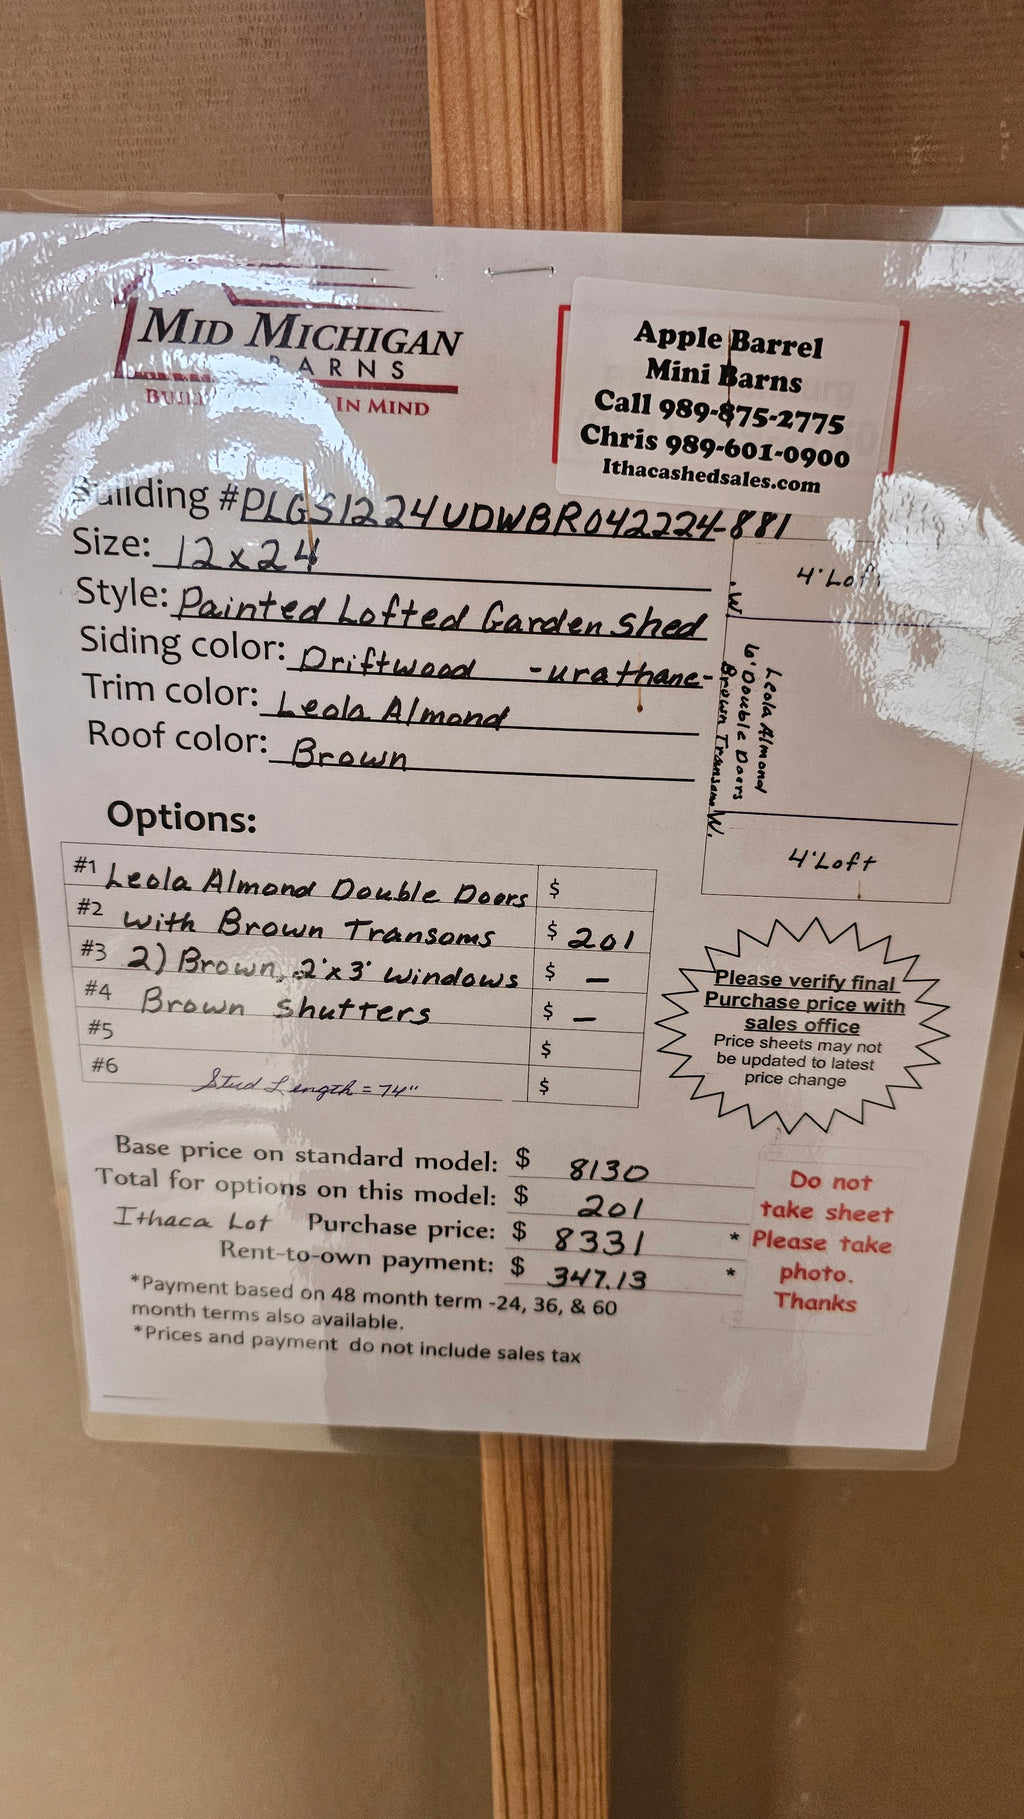 MID MICHIGAN
BARNS
IN MIND
Apple Barrel
Mini Barns
Call 989-875-2775
Chris 989-601-0900
Ithacashedsales.com
Building #PLGS1224UDWBR042224-881
Size: 12x24
Style: Painted Lofted Garden Shed
Siding color: Driftwood -urathane-
Trim color: Leola Almond
Roof color: Brown
4' Loft
W.
Leola Almond
6' Double Doors
Brown Transom
W.
4' Loft
Options:
#1 Leola Almond Double Doors $
#2 with Brown Transoms $ 201
#3 2) Brown, 2'x3' windows $ –
#4 Brown Shutters $ –
#5 $
#6 Stud Length = 74" $
Please verify final
Purchase price with
sales office
Price sheets may not
be updated to latest
price change
Base price on standard model: $ 8130
Total for options on this model: $ 201
Ithaca Lot Purchase price: $ 8331 *
Rent-to-own payment: $ 347.13 *
*Payment based on 48 month term -24, 36, & 60
month terms also available.
*Prices and payment do not include sales tax
Do not
take sheet
Please take
photo.
Thanks